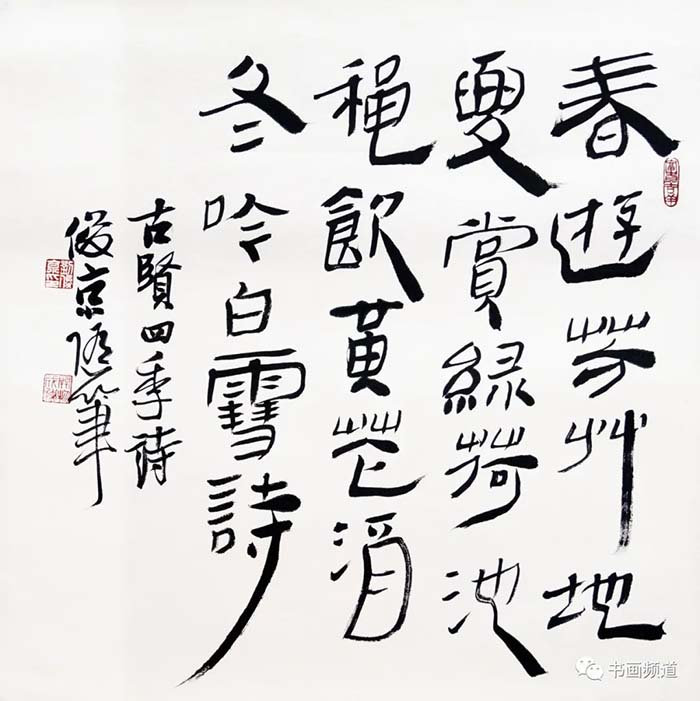 春遊芳艸地
夏賞緑荷池
穐飲黄花酒
冬吟白雪詩
古賢四季詩
俊京随筆
书画频道